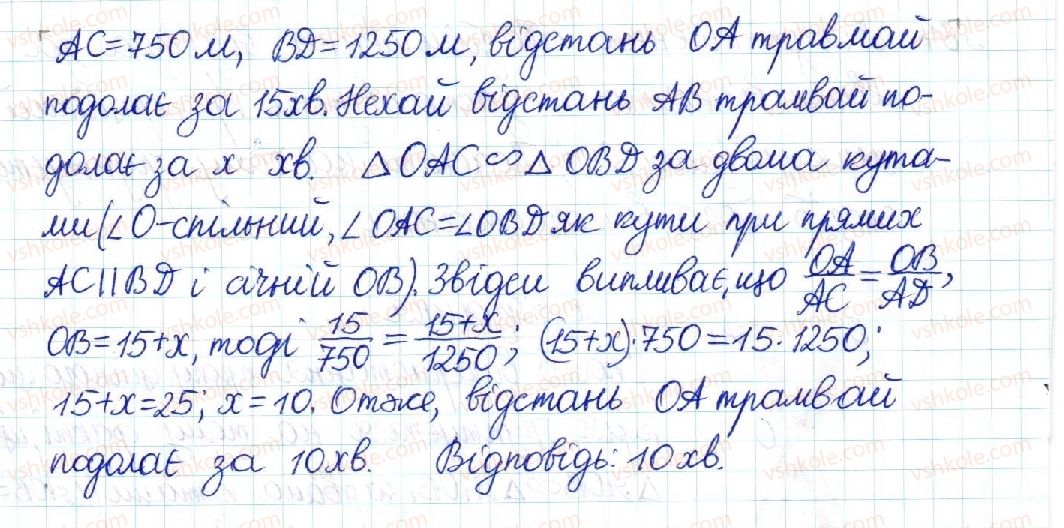 AC=750м, BD=1250м, відстань OA травмай
подолає за 15хв. Нехай відстань AB трамвай по-
долає за x хв. △OAC∽△OBD за двома кута-
ми(∠O-спільний, ∠OAC=∠OBD як кути при прямих
AC||BD і січній OB). Звідси випливає, що OA/AC = OB/AD,
OB=15+x, тоді 15/750 = 15+x/1250; (15+x)·750=15·1250;
15+x=25; x=10. Отже, відстань OA трамвай
подолає за 10хв. Відповідь: 10хв.